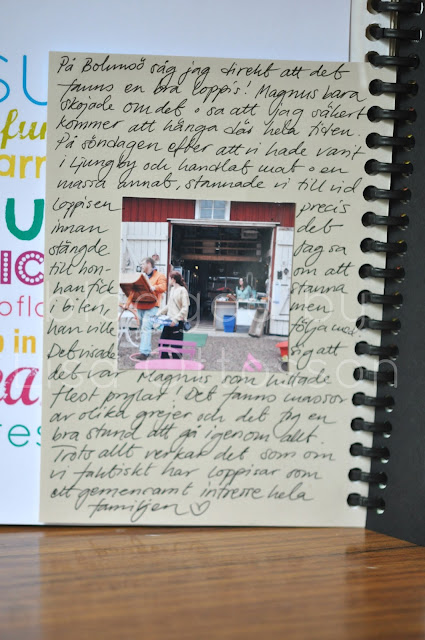 På Bolmsö såg jag direkt att det
fanns en bra loppis! Magnus bara
skojade om det o sa att jag säkert
kommer att hänga där hela tiden.
På söndagen efter att vi hade varit
i Ljungby och handlat mat o en
massa annat, stannade vi till vid
loppisen precis
innan det
stängde Jag sa
till hon- om att
han fick stanna
i bilen, men
han ville följa med
Det visade sig att
det var Magnus som hittade
flest prylar! Det fanns massor
av olika grejer och det tog en
bra stund att gå igenom allt.
Trots allt verkar det som om
vi faktiskt har loppisar som
ett gemensamt intresse hela
familjen
su
fun
arr
u
ic
ofla
in
ma
res